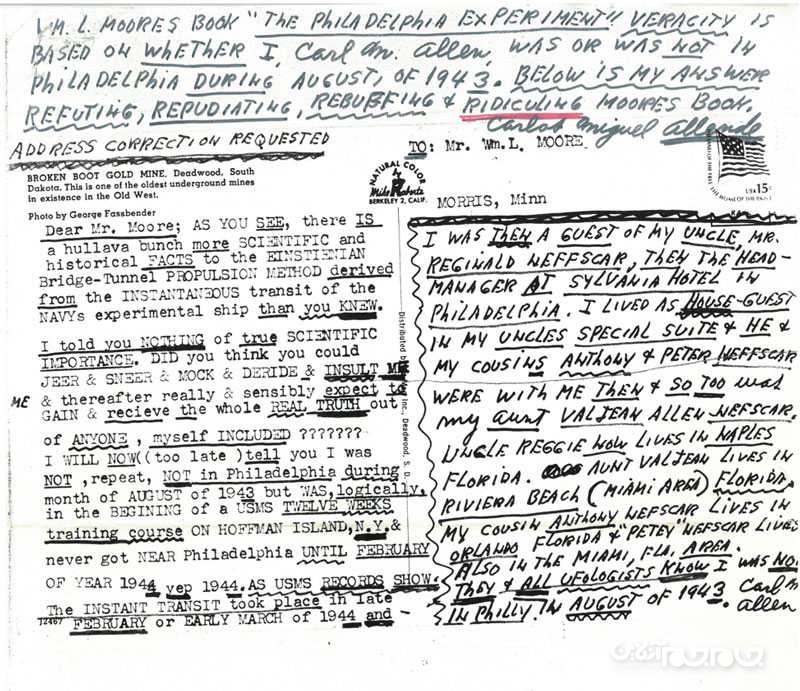 WM. L. MOORES BOOK "THE PHILADELPHIA EXPERIMENT" VERACITY IS
BASED ON WHETHER I, Carl M. Allen, WAS OR WAS NOT IN
PHILADELPHIA DURING AUGUST, OF 1943. BELOW IS MY ANSWER
REFUTING, REPUDIATING, REBUFFING & RIDICULING MOORES BOOK.
Carlos Miguel Allende
ADDRESS CORRECTION REQUESTED
BROKEN BOOT GOLD MINE, Deadwood, South
Dakota. This is one of the oldest underground mines
in existence in the Old West.
Photo by George Fassbender
Dear Mr. Moore; AS YOU SEE, there IS
a hullava bunch more SCIENTIFIC and
historical FACTS to the EINSTIENIAN
Bridge-Tunnel PROPULSION METHOD derived
from the INSTANTANEOUS transit of the
NAVYs experimental ship than you KNEW.
I told you NOTHING of true SCIENTIFIC
IMPORTANCE. DID you think you could
JEER & SNEER & MOCK & DERIDE & INSULT ME
ME & thereafter really & sensibly expect to
GAIN & recieve the whole REAL TRUTH out
of ANYONE , myself INCLUDED ???????
I WILL NOW((too late )tell you I was
NOT ,repeat, NOT in Philadelphia during
month of AUGUST of 1943 but WAS,logically,
in the BEGINING of a USMS TWELVE WEEKS
training course ON HOFFMAN ISLAND,N.Y.&
never got NEAR Philadelphia UNTIL FEBRUARY
OF YEAR 1944 yep 1944.AS USMS RECORDS SHOW.
The INSTANT TRANSIT took place in late
FEBRUARY or EARLY MARCH of 1944 and-
12467
NATURAL COLOR
Mike Roberts
BERKELEY 2, CALIF.
Distributed by
Inc. Deadwood, S. D.
TO: Mr. Wm.L. MOORE
MORRIS, Minn
USA 15c
THE HOME OF THE BRAVE
I WAS THEN A GUEST OF MY UNCLE, MR.
REGINALD NEFFSCAR, THEN THE HEAD-
MANAGER AT SYLVANIA HOTEL IN
PHILADELPHIA. I LIVED AS HOUSE-GUEST
IN MY UNCLES SPECIAL SUITE & HE &
MY COUSINS ANTHONY & PETER NEFFSCAR
WERE WITH ME THEN & SO TOO was
my aunt VALJEAN ALLEN NEFSCAR.
UNCLE REGGIE NOW LIVES IN NAPLES
FLORIDA. AUNT VALJEAN LIVES IN
RIVIERA BEACH (MIAMI AREA) FLORIDA.
MY COUSIN ANTHONY NEFSCAR LIVES IN
ORLANDO FLORIDA & "PETEY" NEFSCAR LIVES
ALSO IN THE MIAMI, FLA. AREA.
THEY & ALL UFOLOGISTS KNOW I WAS NO
IN PHILLY. IN AUGUST OF 1943. Carl M
Allen